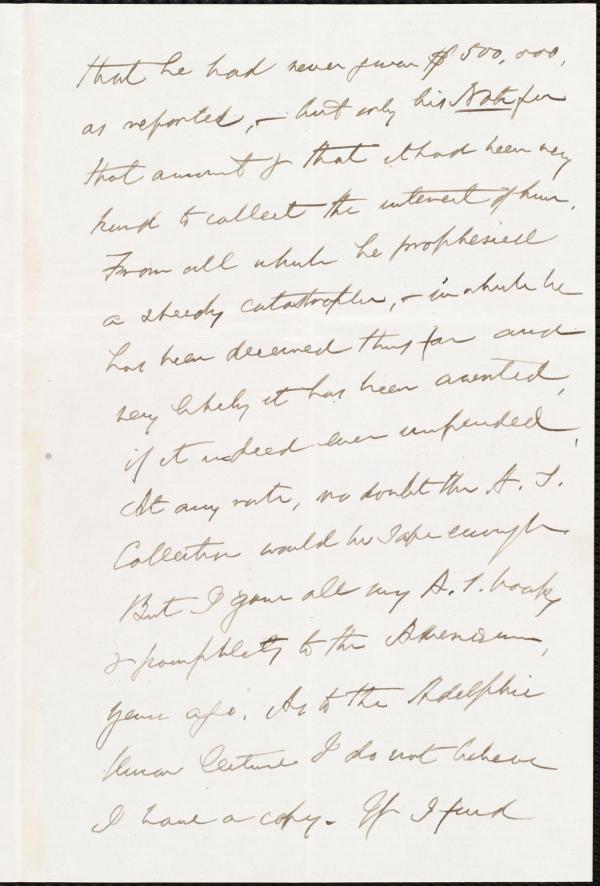 that he had never given $500,000,
as reported, - but only his Note for
that amount & that it had been very
hard to collect the interest of him.
From all which he prophesied
a speedy catastrophe, - in which he
has been deceived thus far and
very likely it has been averted,
if it indeed ever impended.
At any rate, no doubt the A. S.
Collection would be safe enough
But I gave all my A. S. books
& pamphlets to the Athenaeum,
years ago. As to the Adelphic
Union lecture I do not believe
I have a copy. If I find